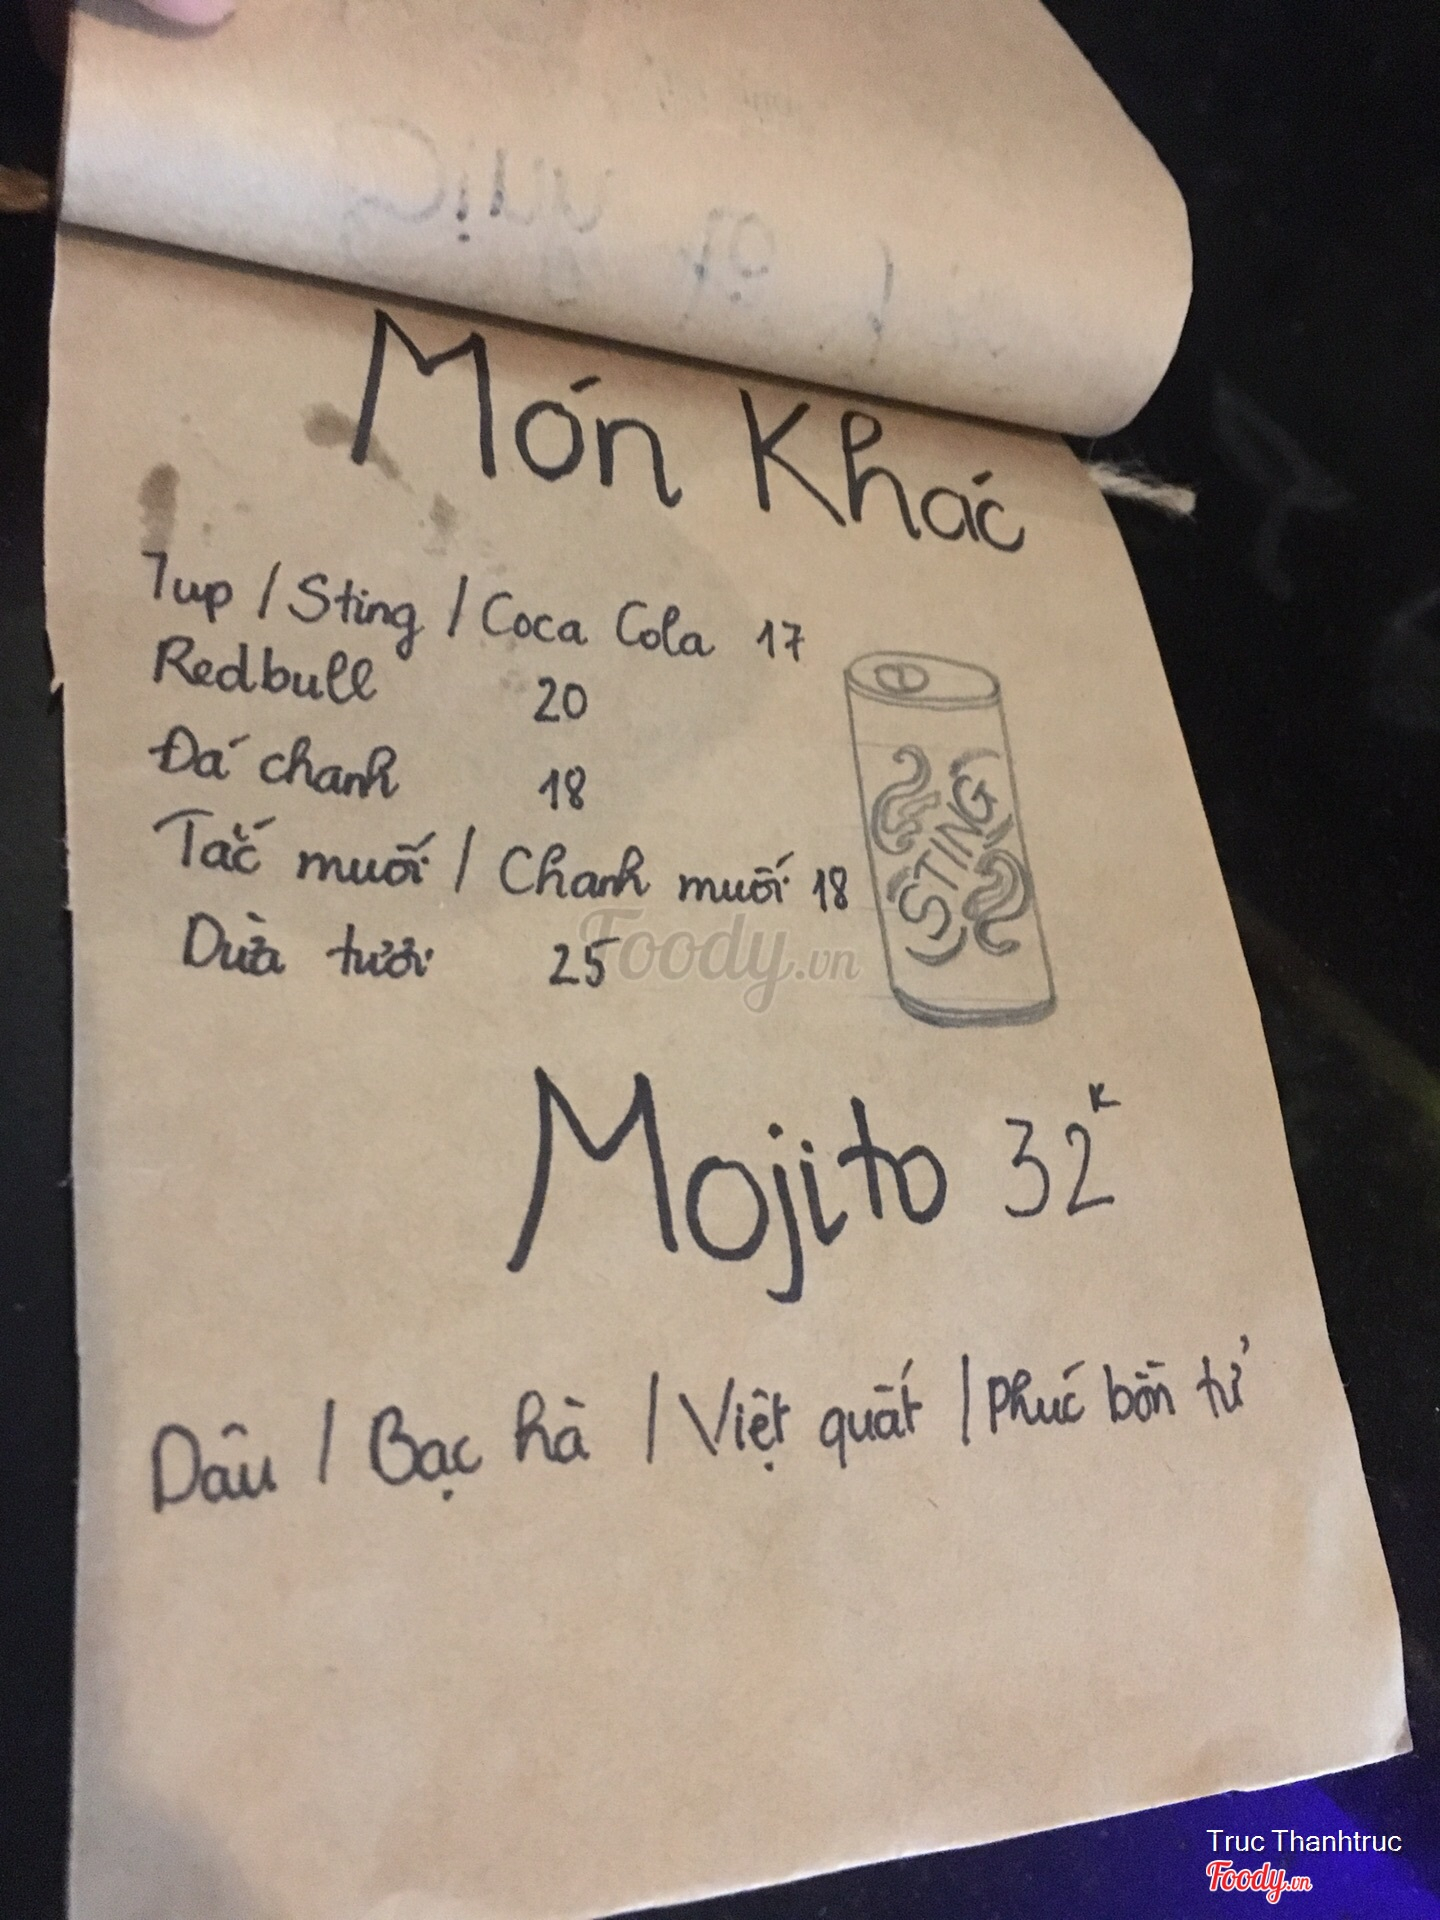 Món Khác
7up / Sting / Coca Cola 17
Redbull 20
Đá chanh 18
Tắc muối / Chanh muối 18
Dừa tươi 25
STING
Foody.vn
Mojito 32K
Dâu / Bạc hà / Việt quất / Phúc bồn tử
Truc Thanhtruc
Foody.vn